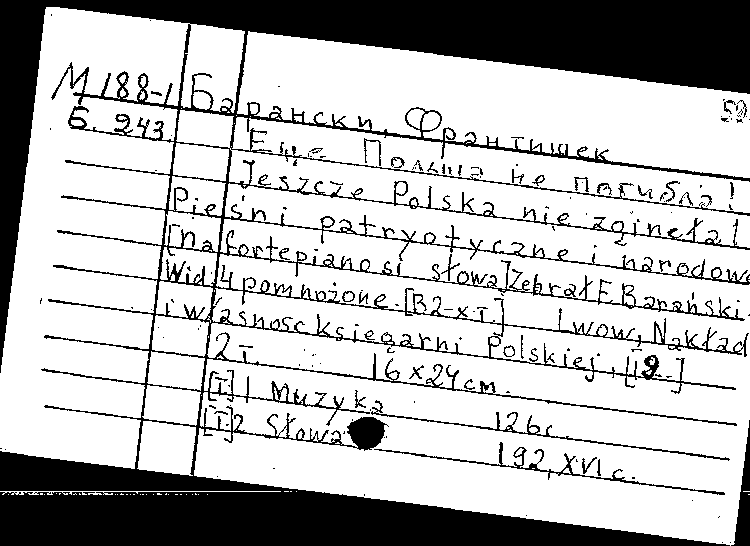 М 188-1 Барански, Франтишек 50
Б. 243. Еще Польша не погибла!
Jeszcze Polska nie zginęła!
Pieśni patryotyczne i narodowe
[na fortepiano si słowa] Zebrał F. Barański.
Wid. 4 pomnożone. [B 2-х т.] Lwow, Nakład
i własnosc księgarni Polskiej, [19..]
2 т. 16 x 24 cm.
[T.] 1 Muzyka 126 с.
[T.] 2 Słowa 192, XVI с.